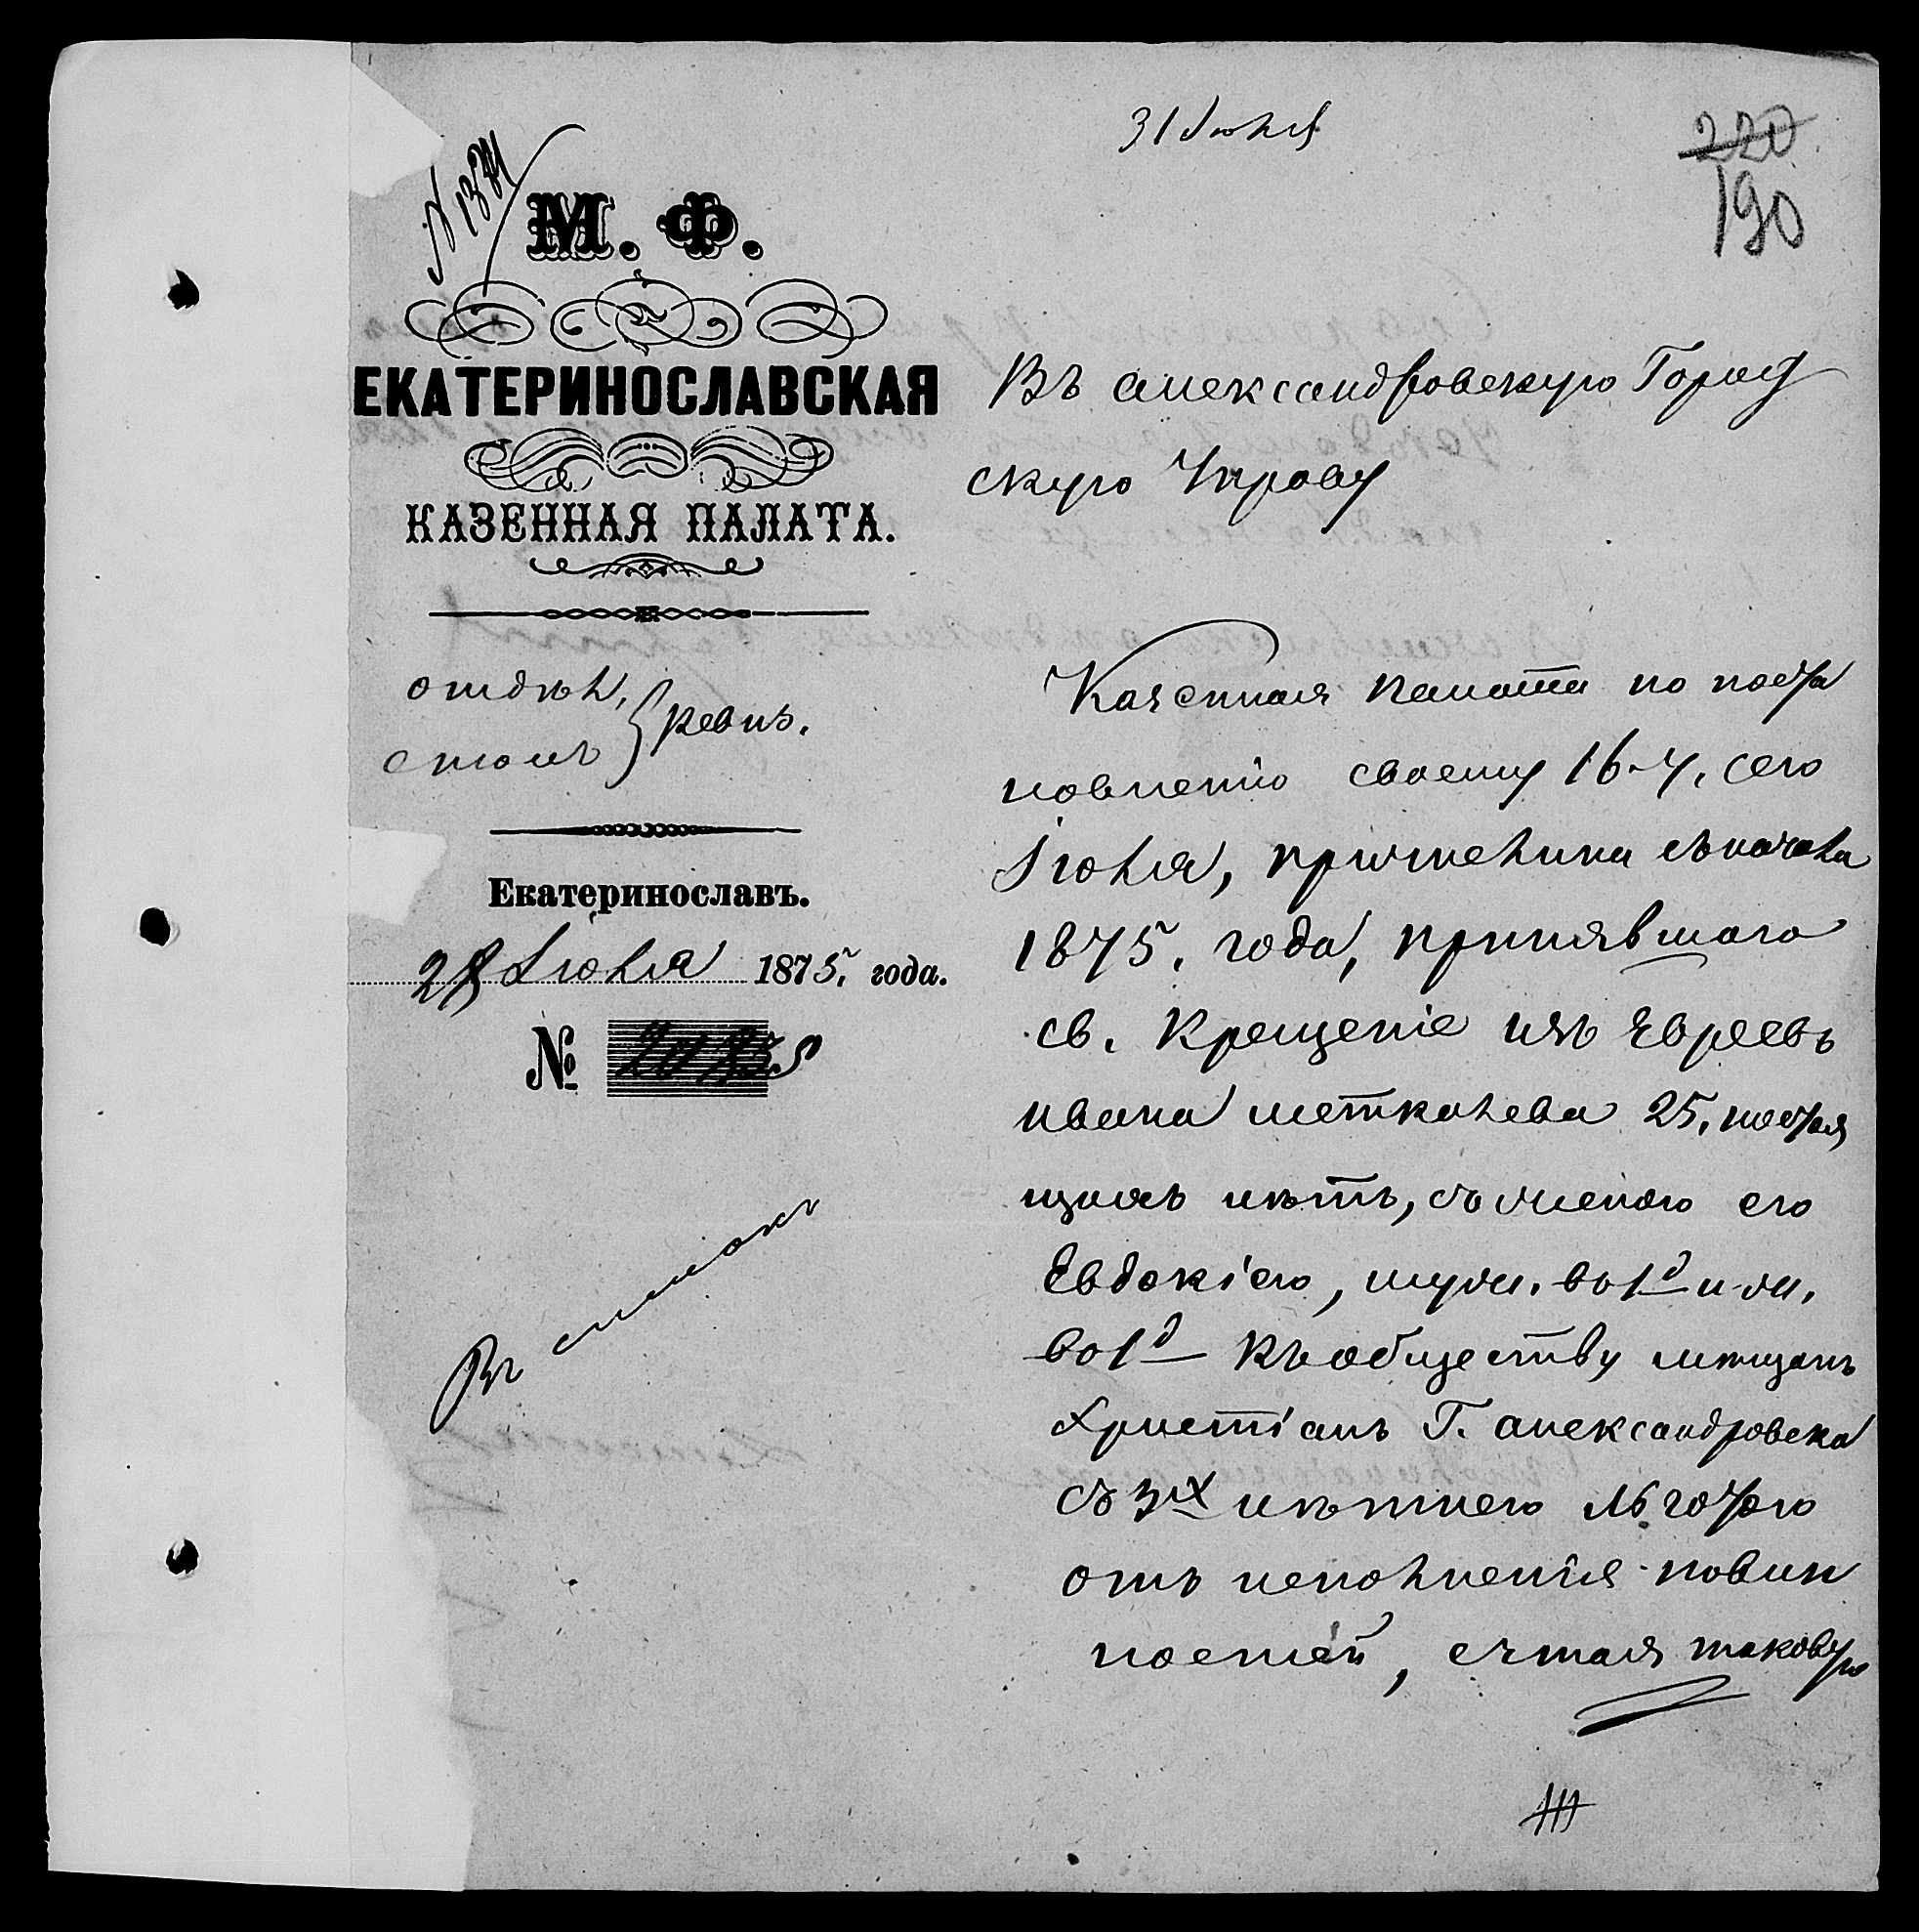 31 Іюля
220
190
М. Ф.
ЕКАТЕРИНОСЛАВСКАЯ
КАЗЕННАЯ ПАЛАТА.
отдѣл.
столъ
ревиз.
Екатеринославъ.
28 Іюля 1875. года.
№
Въ списокъ
Въ Александровскую Город
скую Управу
Казенная Палата по поста
новленію своему 16-ч. сего
Іюля, причислила съ начала
1875. года, принявшаго
св. Крещеніе изъ Евреевъ
Ивана 25. настоя
щихъ лѣтъ, съ женою его
Евдокіею, муж. во 1й и ж.
во 1й къ обществу мѣщанъ
Христіанъ г. Александровска
съ 3х лѣтнею льготою
отъ исполненія повин
ностей, считая таковую